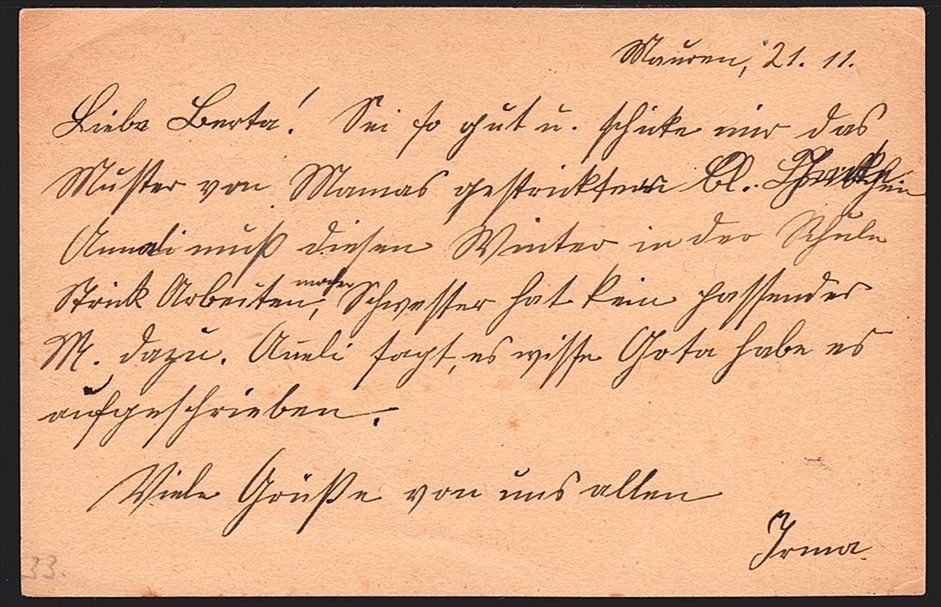 Mauren, 21. 11.
Liebe Berta! Sei so gut u. schicke mir das
Muster von Mamas gestrickten Bl.
Anneli muß diesen Winter in der Schule
Strick Arbeiten machen, Schwester hat kein passendes
M. dazu. Aneli sagt, es wisse Gota habe es
aufgeschrieben.
Viele Grüße von uns allen
Irma.
33.